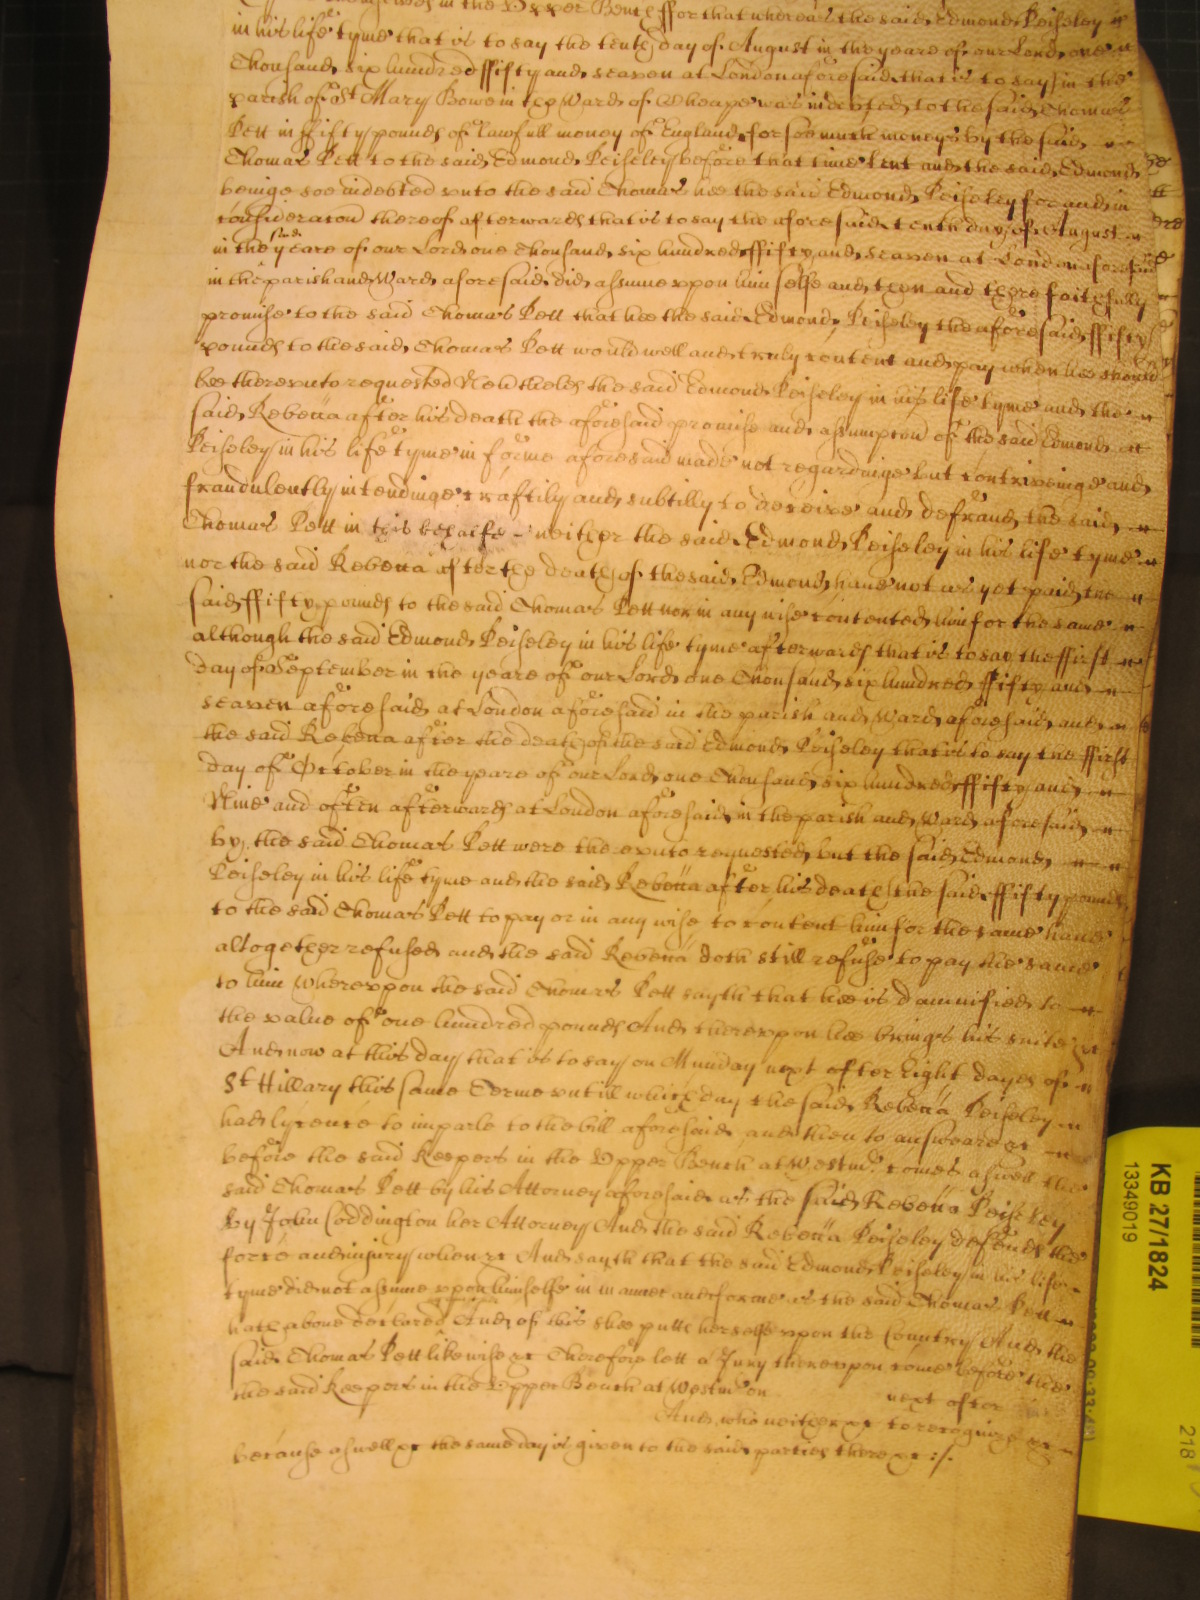 in the Upper Bench ffor that whereas the said Edmond Peiseley
in his life tyme that is to say the tenth day of August in the yeare of our Lord one
Thousand six hundred ffifty and seaven at London aforesaid that is to say in the
parish of St Mary Bowe in the Ward of Cheape was indebted to the said Thomas
Pett in ffifty pounds of lawfull money of England for soe much moneys by the said
Thomas Pett to the said Edmond Peiseley before that time lent and the said Edmond
beinge soe indebted unto the said Thomas hee the said Edmond Peiseley for and in
consideracon thereof afterwards that is to say the aforesaid tenth day of August
in the said yeare of our Lord one Thousand six hundred ffifty and seaven at London aforesaid
in the parish and Ward aforesaid did assume uppon him selfe and then and there faithfully
promise to the said Thomas Pett that hee the said Edmond Peiseley the aforesaid ffifty
pounds to the said Thomas Pett would well and truly content and pay when hee should
bee thereunto requested Neverthelesse the said Edmond Peiseley in his life tyme and the
said Rebecca after his death the aforesaid promise and assumpcon of the said Edmond
Peiseley in his life tyme in forme aforesaid made not regardinge but contriveinge and
fraudulently intendinge craftily and subtilly to deceive and defraud the said
Thomas Pett in this behalfe neither the said Edmond Peiseley in his life tyme
nor the said Rebecca after the death of the said Edmond have not as yet paid the
said ffifty pounds to the said Thomas Pett nor in any wise contented him for the same
although the said Edmond Peiseley in his life tyme afterwards that is to say the ffirst
day of September in the yeare of our Lord one Thousand six hundred ffifty and
seaven aforesaid at London aforesaid in the parish and Ward aforesaid and
the said Rebecca after the death of the said Edmond Peiseley that is to say the ffirst
day of October in the yeare of our Lord one Thousand six hundred ffifty and
Nine and often afterwards at London aforesaid in the parish and Ward aforesaid
by the said Thomas Pett were thereunto requested but the said Edmond
Peiseley in his life tyme and the said Rebecca after his death the said ffifty pounds
to the said Thomas Pett to pay or in any wise to content him for the same have
altogether refused and the said Rebecca doth still refuse to pay the same
to him Whereupon the said Thomas Pett sayth that hee is damnified to
the value of one hundred pounds And thereupon hee brings his suite &c
And now at this day that is to say on Munday next after Eight dayes of
St Hillary this same Terme untill which day the said Rebecca Peiseley
had lycence to imparle to the bill aforesaid and then to answeare &c
before the said Keepers in the Upper Bench at Westmr comes aswell the
said Thomas Pett by his Attorney aforesaid as the said Rebecca Peiseley
by John Coddington her Attorney And the said Rebecca Peiseley defends the
force and injury when &c And sayth that the said Edmond Peiseley in his life
tyme did not assume upon himselfe in manner and forme as the said Thomas Pett
hath above declared And of this shee putts herselfe upon the Country And the
said Thomas Pett likewise &c Therefore lett a Jury thereupon come before the
the said Keepers in the Upper Bench at Westmr on next after
And who neither &c to recognize &c
because aswell &c the same day is given to the said parties there &c :/.
KB 27/1824
13349019
218